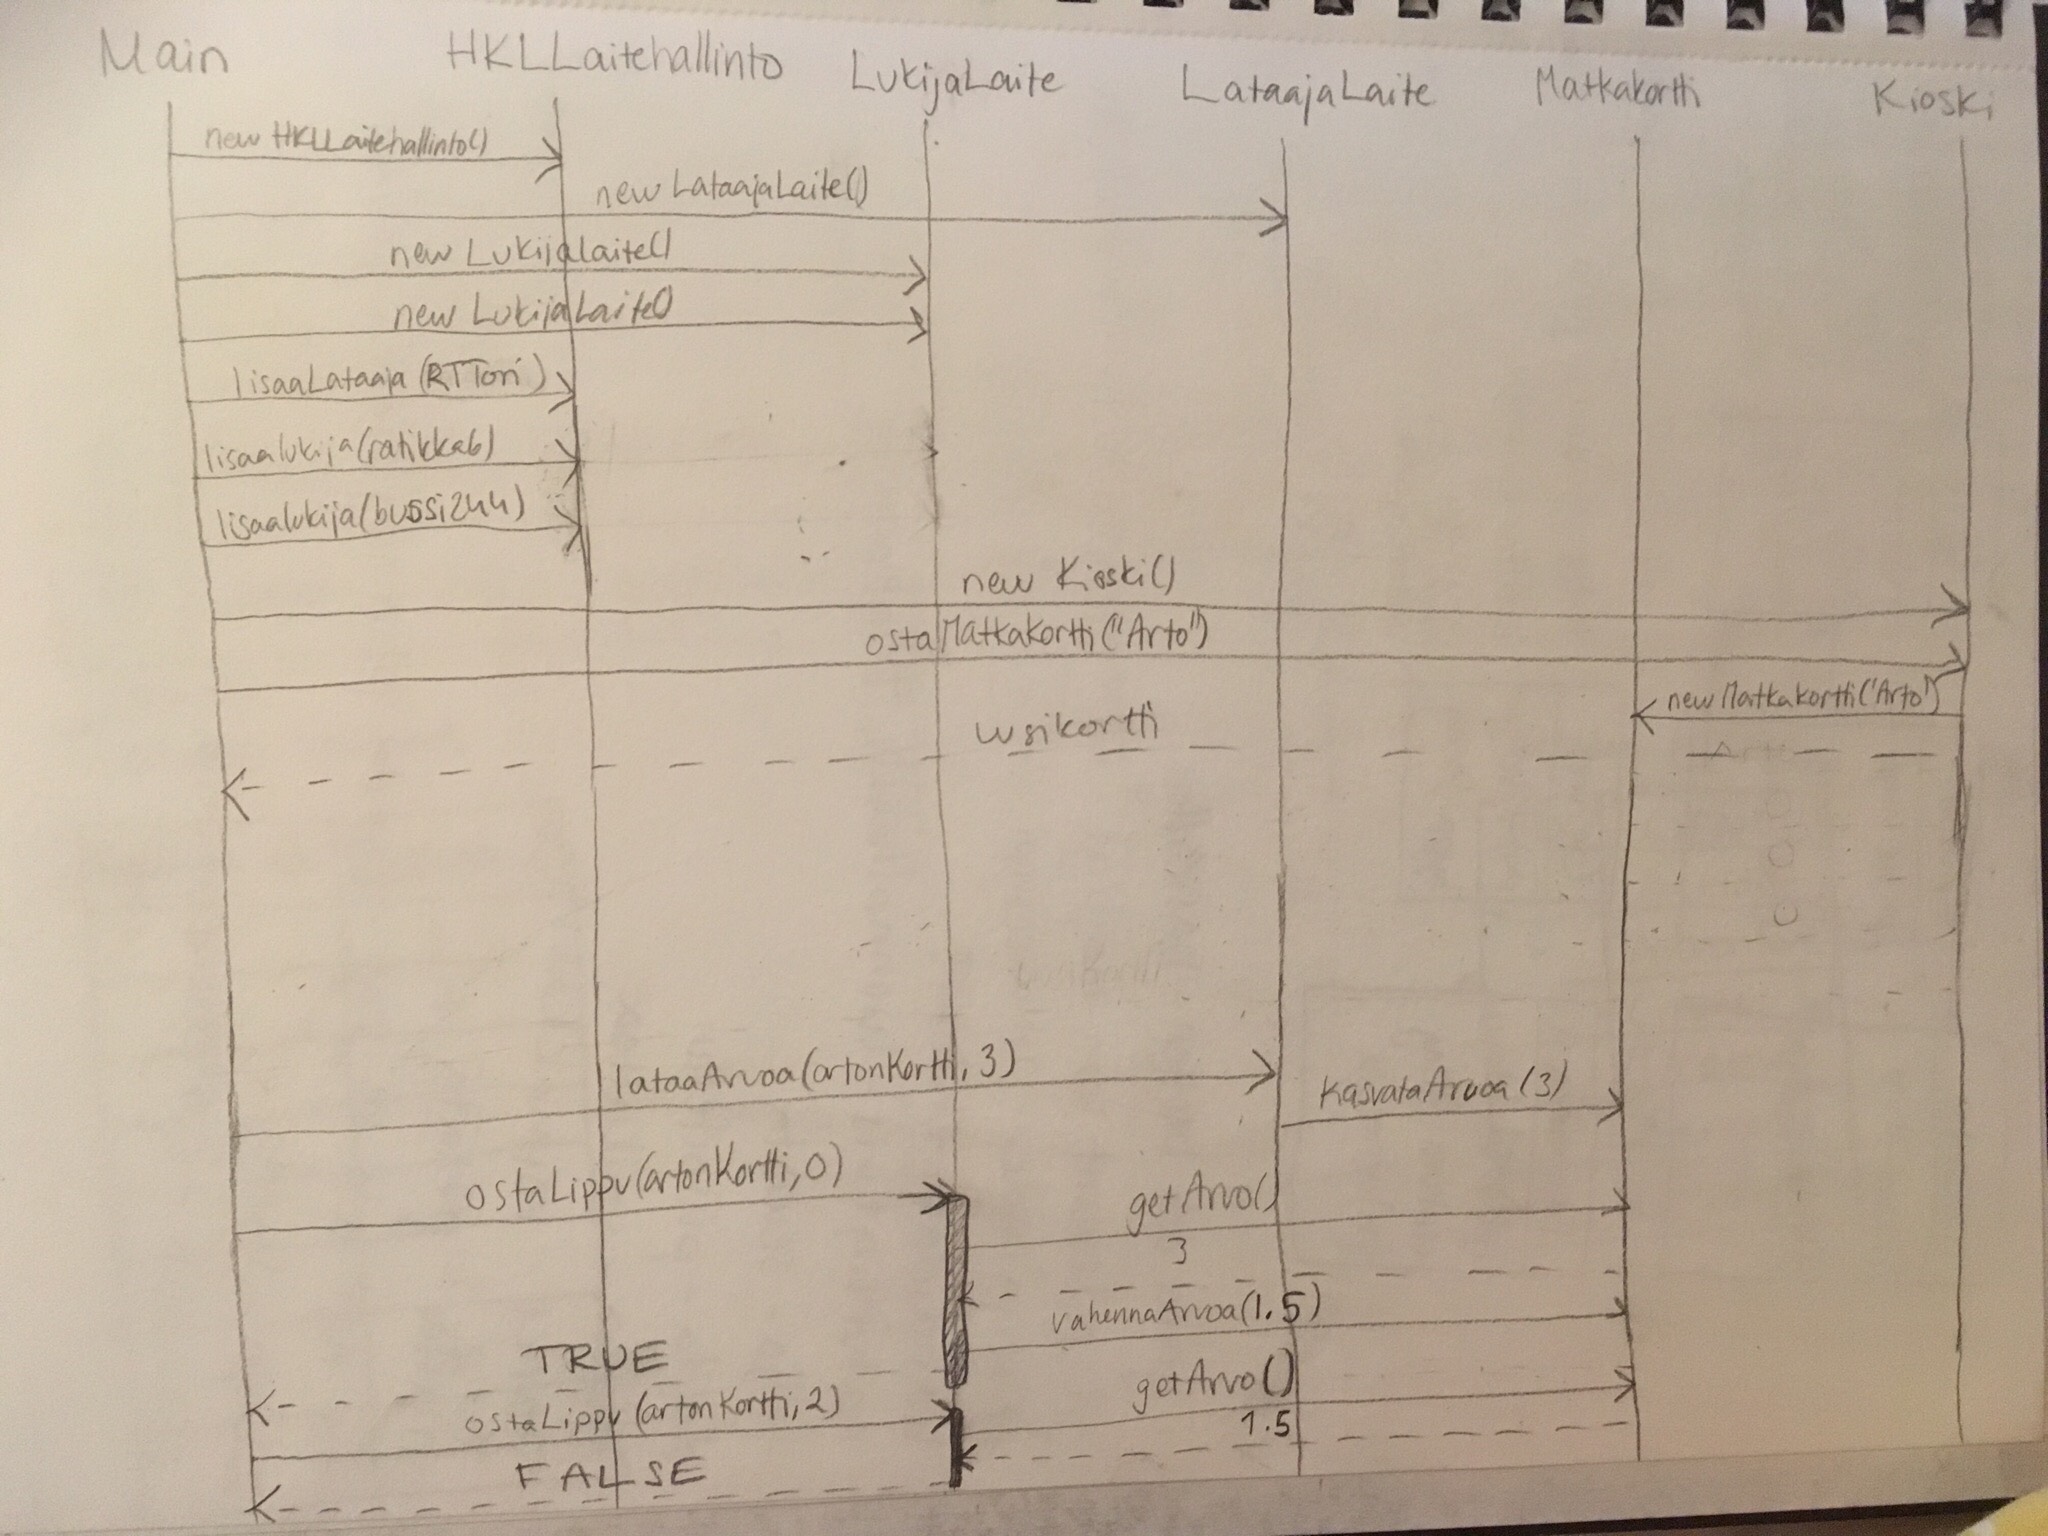 Main
HKLLaitehallinto
LukijaLaite
LataajaLaite
Matkakortti
Kioski
new HKLLaitehallinto()
new LataajaLaite()
new LukijaLaite()
new LukijaLaite()
lisaaLataaja(RTTori)
lisaalukija(ratikka6)
lisaalukija(bussi244)
new Kioski()
ostaMatkakortti("Arto")
newMatkakortti("Arto")
uusikortti
lataaArvoa(artonKortti, 3)
kasvataArvoa(3)
ostaLippu(artonKortti, 0)
getArvo()
3
vahennaArvoa(1.5)
TRUE
getArvo()
ostaLippu(artonKortti, 2)
1.5
FALSE